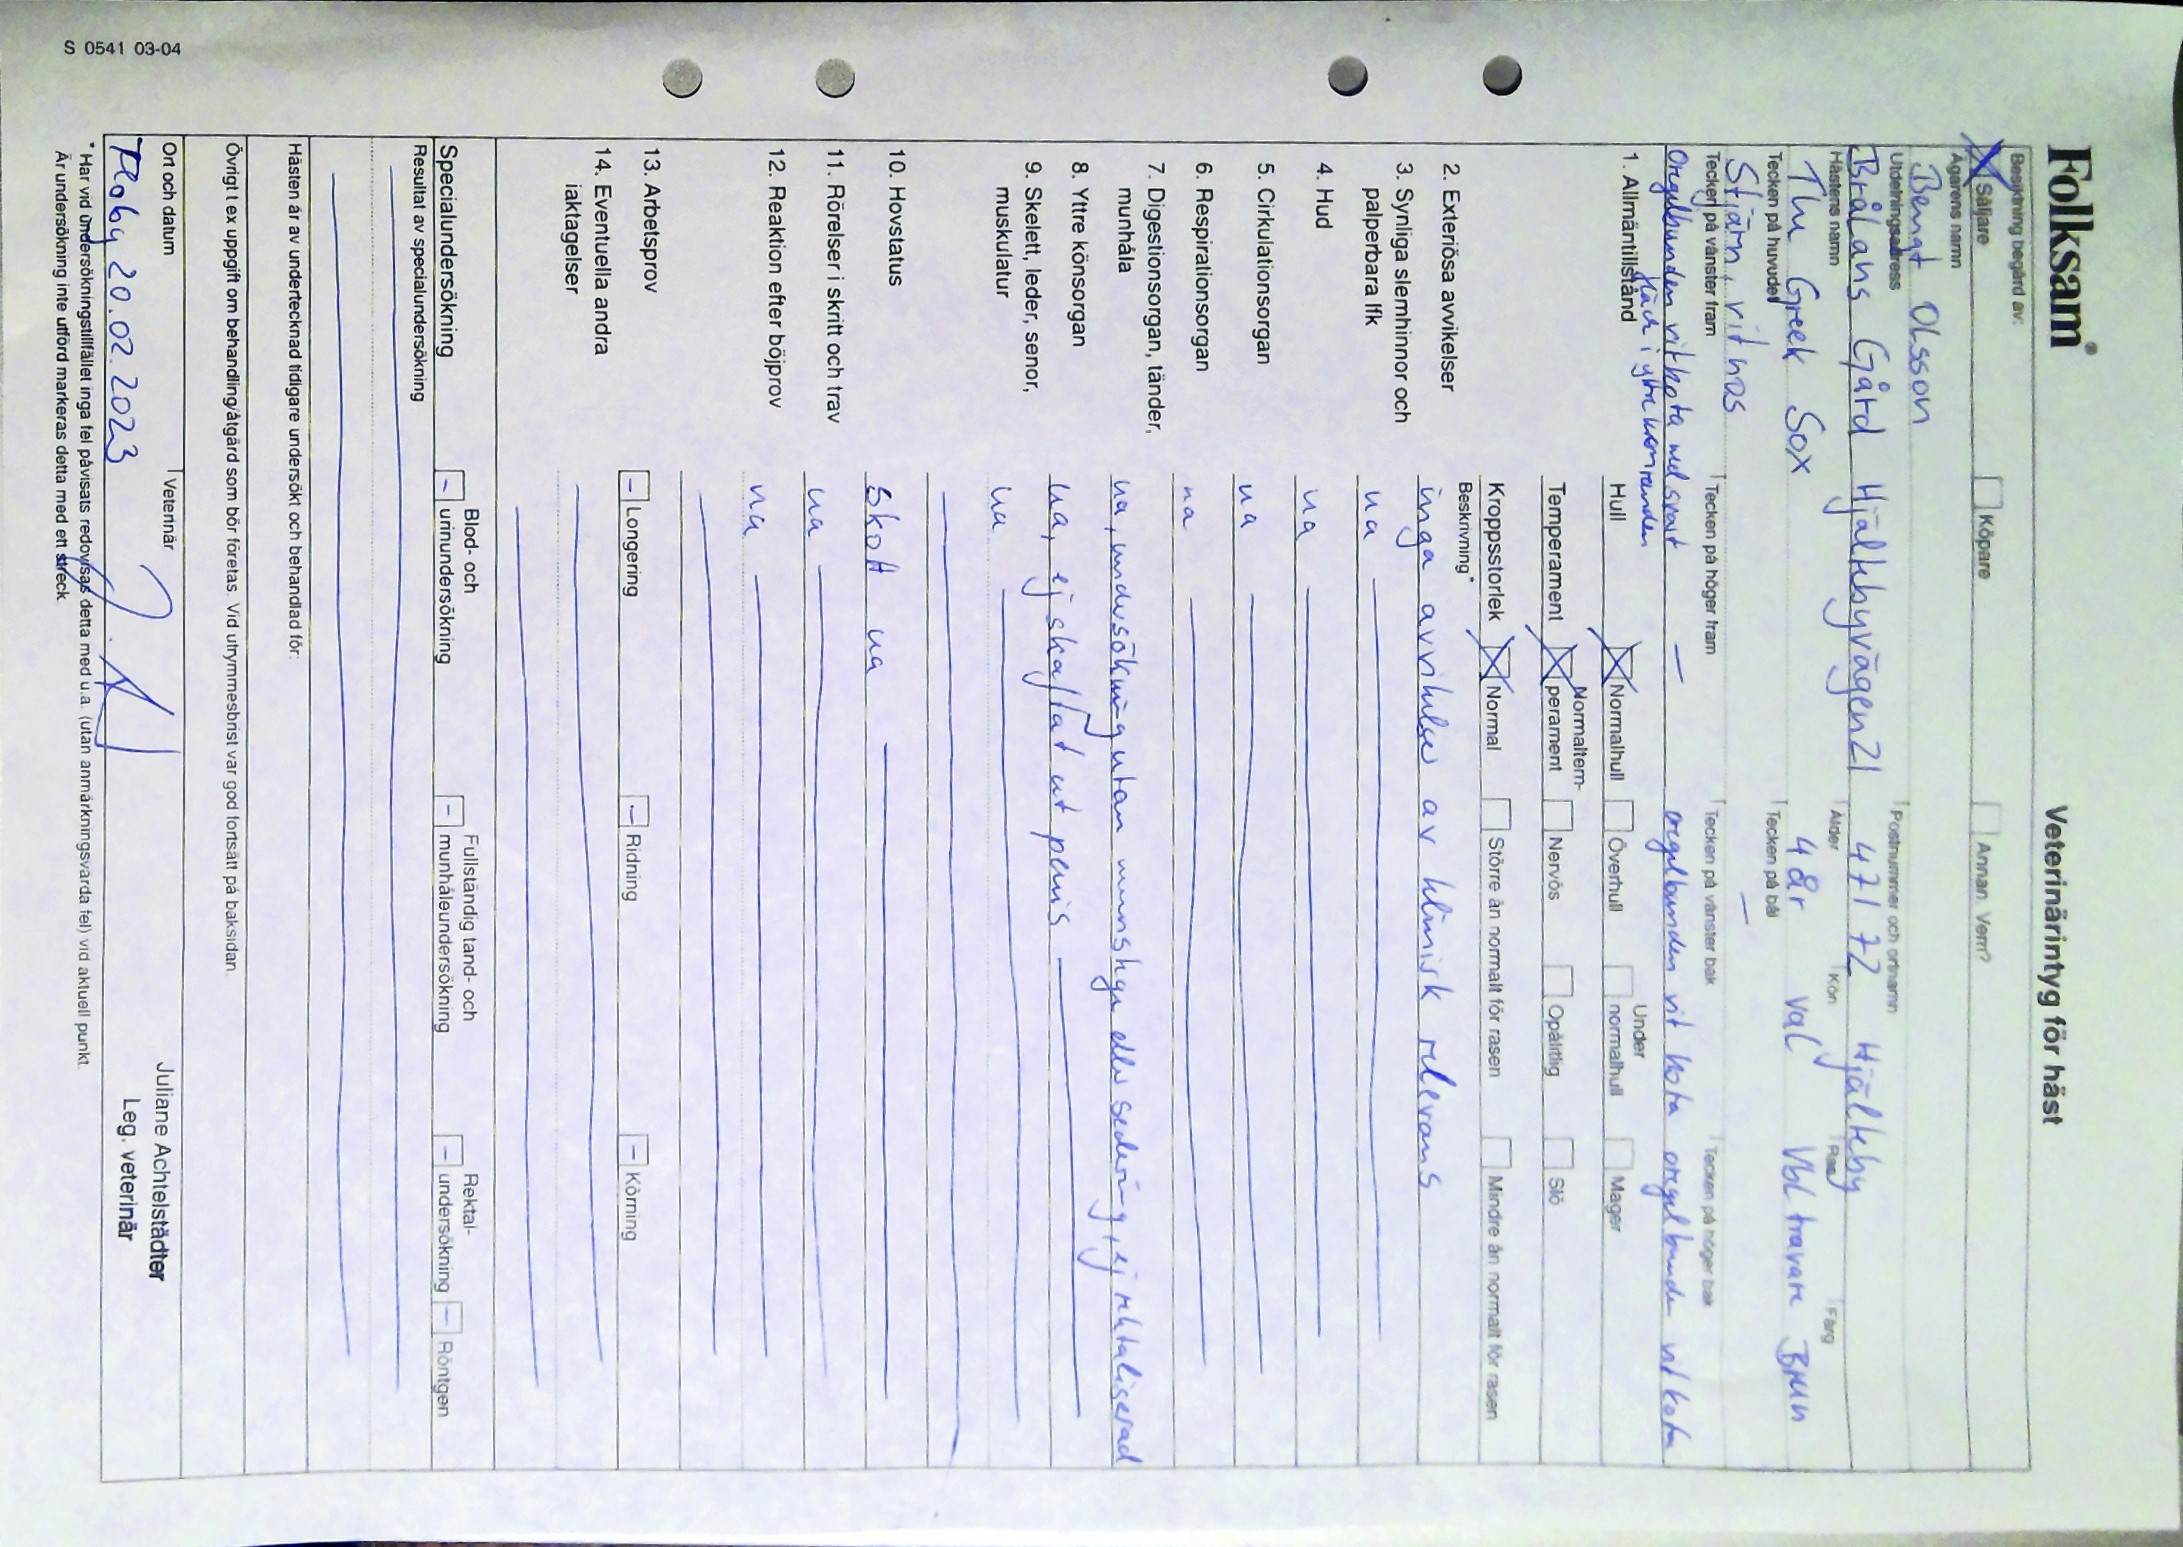 Folksam®
Veterinärintyg för häst
Besiktning begärd av:
X Säljare Köpare Annan. Vem?
Ägarens namn
Bengt Olsson
Utdelningsadress Postnummer och ortnamn
Brålans Gård Hjältebyvägen 21 471 72 Hjälteby
Hästens namn Ålder Kön Ras Färg
The Greek Sox 4 år val Vbl travare Brun
Tecken på huvudet Tecken på bål
Stjärn, vit nos —
Tecken på vänster fram Tecken på höger fram Tecken på vänster bak Tecken på höger bak
Oregelbunden vit kota med svart — oregelbunden vit kota oregelbunden vit kota
fläck i yttre kronranden
1. Allmäntillstånd Hull X Normalhull Överhull Under normalhull Mager
Temperament X Normaltemperament Nervös Opålitlig Slö
Kroppsstorlek X Normal Större än normalt för rasen Mindre än normalt för rasen
Beskrivning*
2. Exteriösa avvikelser inga avvikelser av klinisk relevans
3. Synliga slemhinnor och
palperbara lfk ua
4. Hud ua
5. Cirkulationsorgan ua
6. Respirationsorgan ua
7. Digestionsorgan, tänder,
munhåla ua, undersökning utan munstege eller sedering, ej rektaliserad
8. Yttre könsorgan ua, ej skaftat ut penis
9. Skelett, leder, senor,
muskulatur ua
10. Hovstatus skott ua
11. Rörelser i skritt och trav ua
12. Reaktion efter böjprov ua
13. Arbetsprov – Longering – Ridning – Körning
14. Eventuella andra
iaktagelser
Specialundersökning – Blod- och urinundersökning – Fullständig tand- och munhåleundersökning – Rektal-undersökning – Röntgen
Resultat av specialundersökning
Hästen är av undertecknad tidigare undersökt och behandlad för:
Övrigt t ex uppgift om behandling/åtgärd som bör företas. Vid utrymmesbrist var god fortsätt på baksidan.
Ort och datum Veterinär
Floby 20.02.2023
Juliane Achtelstädter
Leg. veterinär
* Har vid undersökningstillfället inga fel påvisats redovisas detta med u.a. (utan anmärkningsvärda fel) vid aktuell punkt.
Är undersökning inte utförd markeras detta med ett streck.
S 0541 03-04